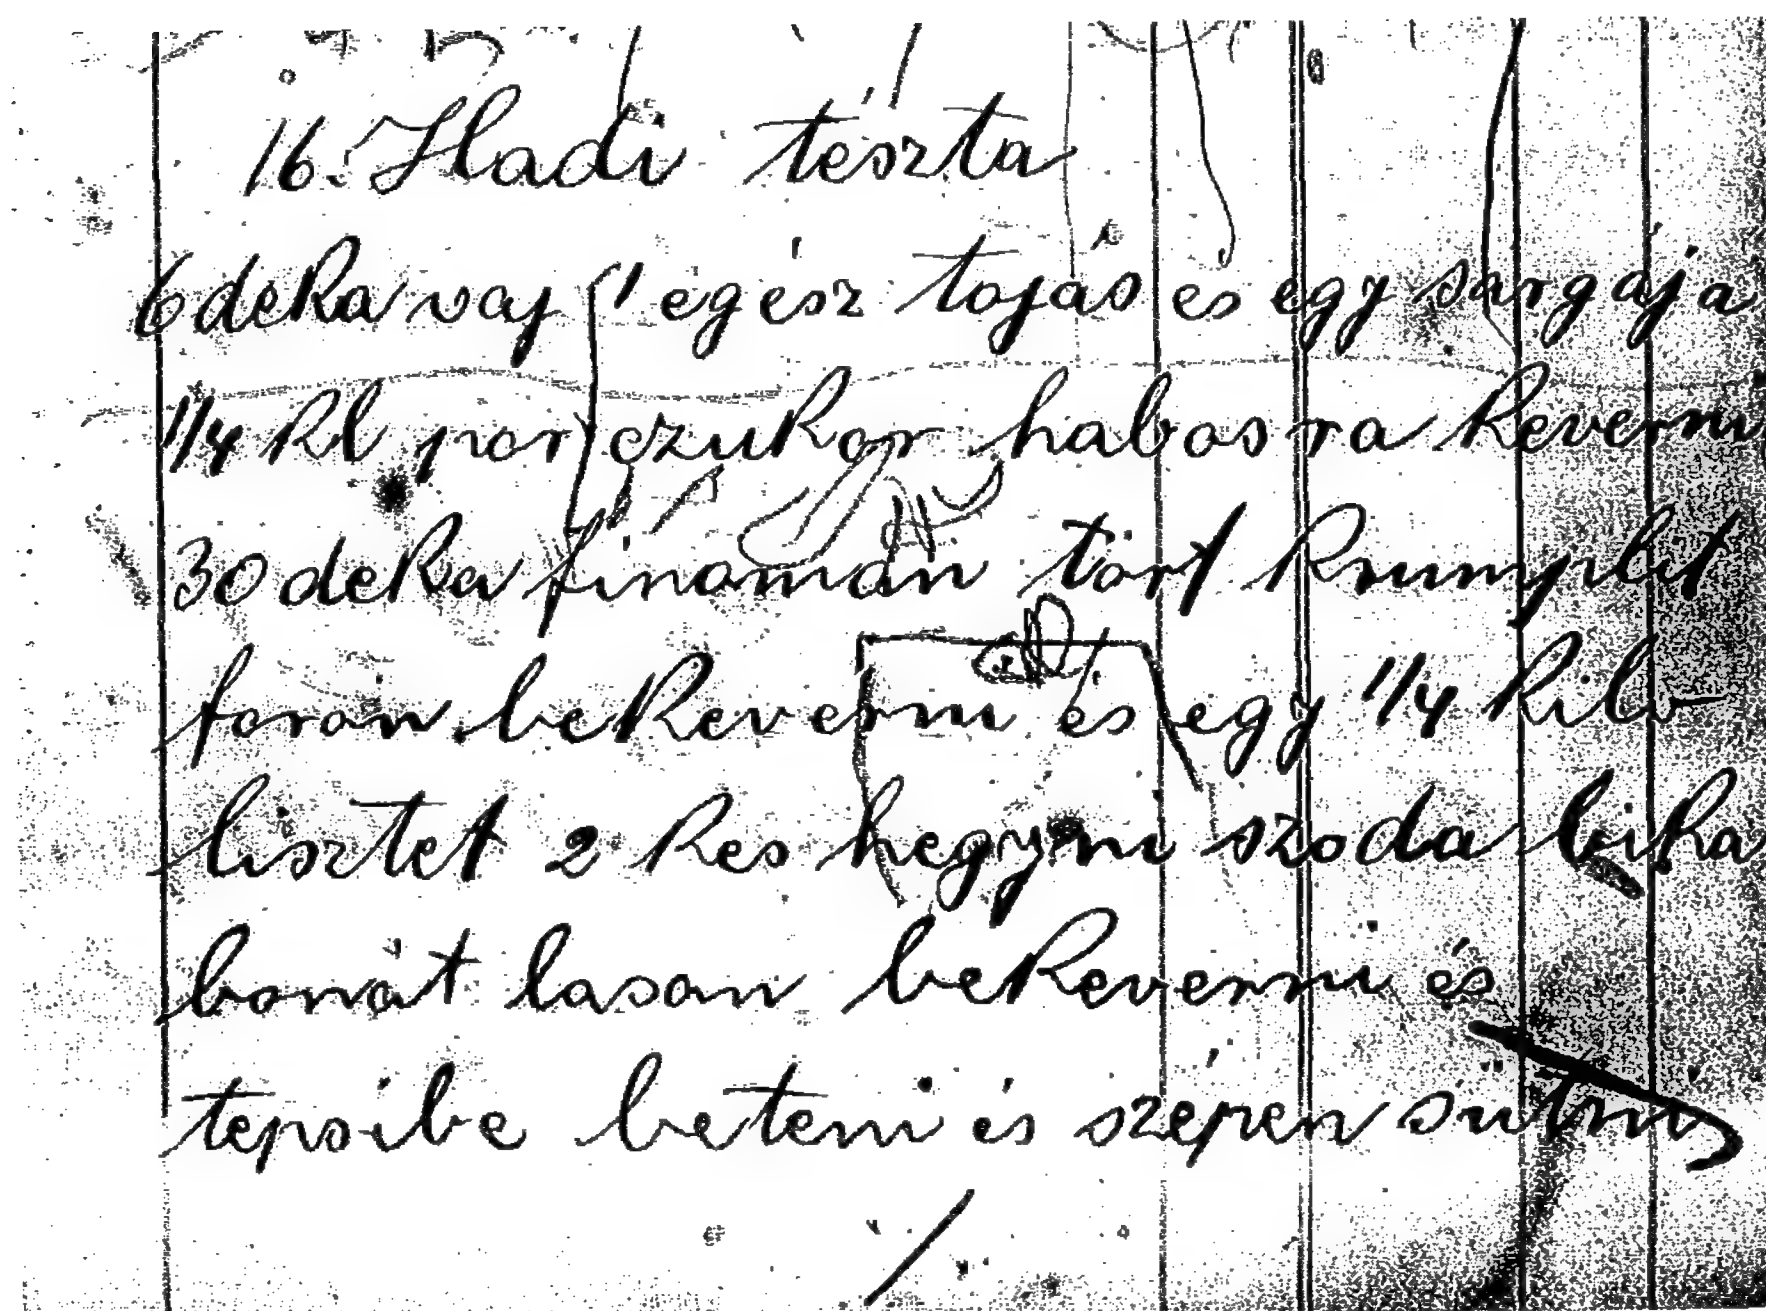 16. Hadi tészta
6 deka vaj 1 egész tojás és egy sárgája
1/4 kl por czukor habosra keverni
30 deka finomán tört krumplit
foron bekeverni és egy 1/4 kiló
lisztet 2 kes hegyni szoda bika
bonát lasan bekeverni és
tepsibe betenni és szépen sütni